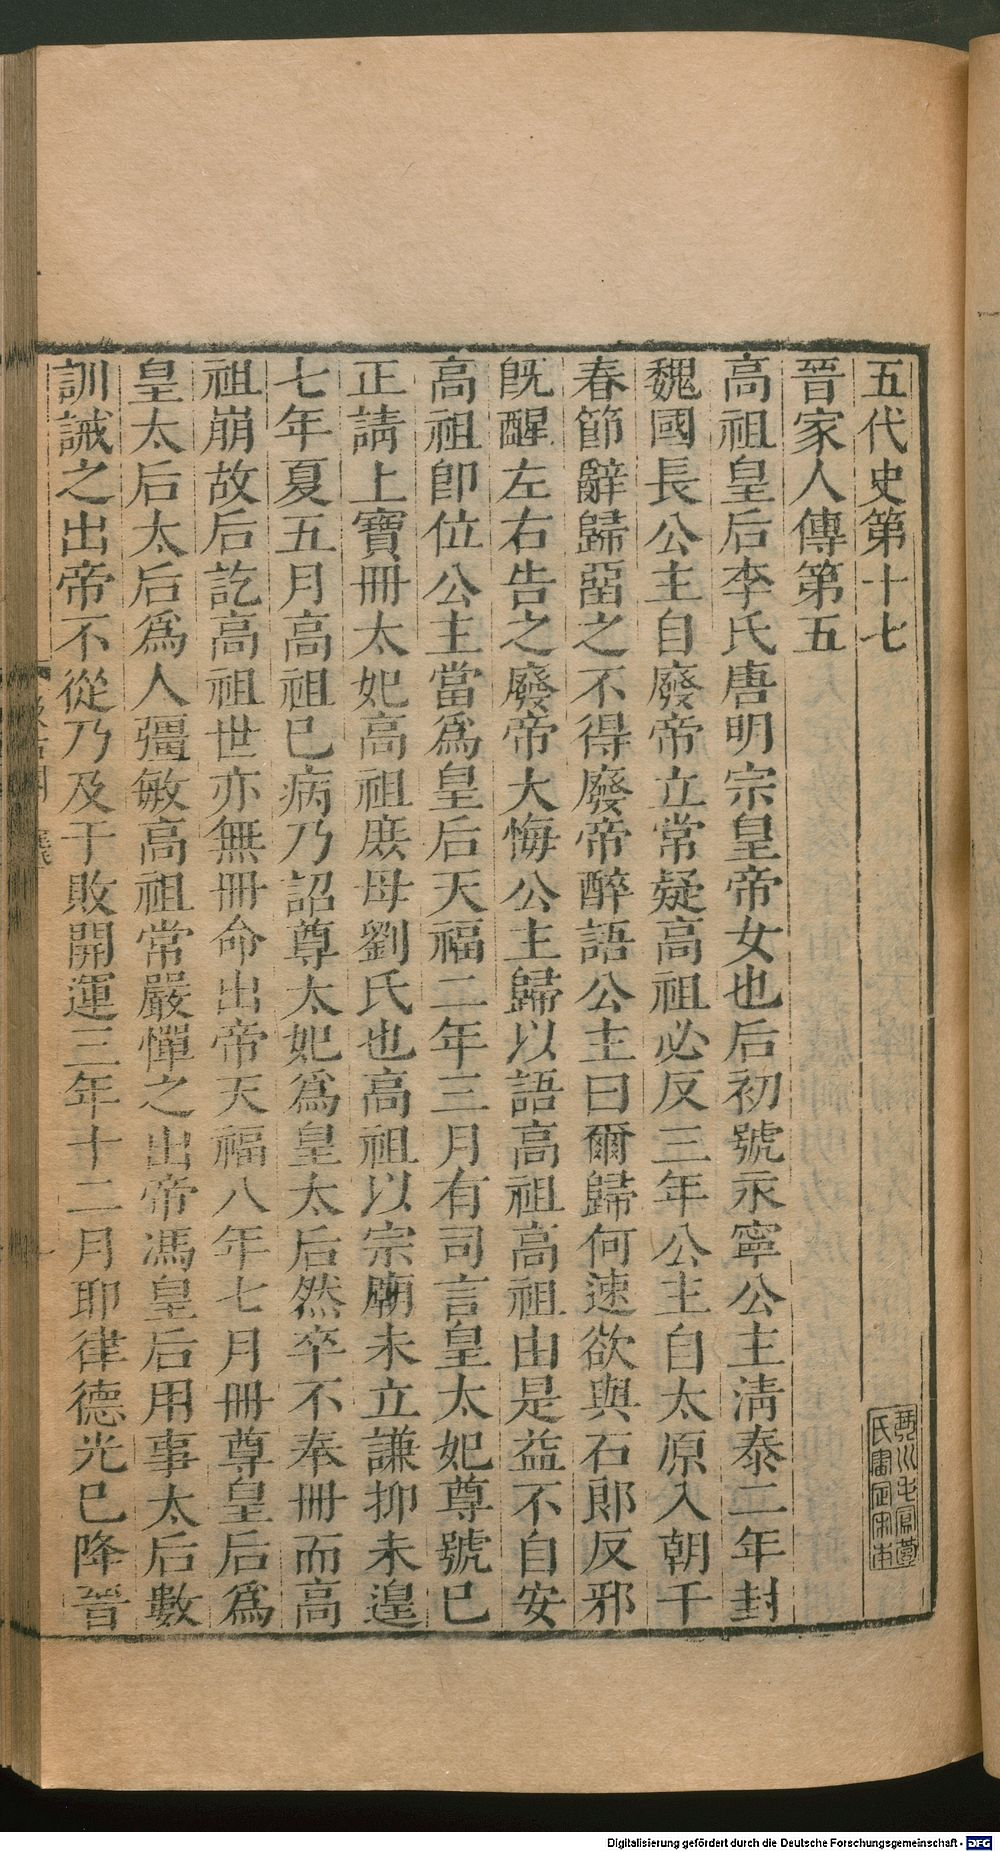 五代史第十七
晉家人傳第五
高祖皇后李氏唐明宗皇帝女也后初號永寧公主清泰二年封
魏國長公主自廢帝立常疑高祖必反三年公主自太原入朝千
春節辭歸畱之不得廢帝醉語公主曰爾歸何速欲與石郎反邪
旣醒左右告之廢帝大悔公主歸以語高祖高祖由是益不自安
高祖卽位公主當爲皇后天福二年三月有司言皇太妃尊號已
正請上寶冊太妃高祖庶母劉氏也高祖以宗廟未立謙抑未遑
七年夏五月高祖已病乃詔尊太妃爲皇太后然卒不奉冊而高
祖崩故后訖高祖世亦無冊命出帝天福八年七月冊尊皇后爲
皇太后太后爲人彊敏高祖常嚴憚之出帝馮皇后用事太后數
訓誡之出帝不從乃及于敗開運三年十二月耶律德光已降晉
氏審定宋本
Digitalisierung gefördert durch die Deutsche Forschungsgemeinschaft - DFG